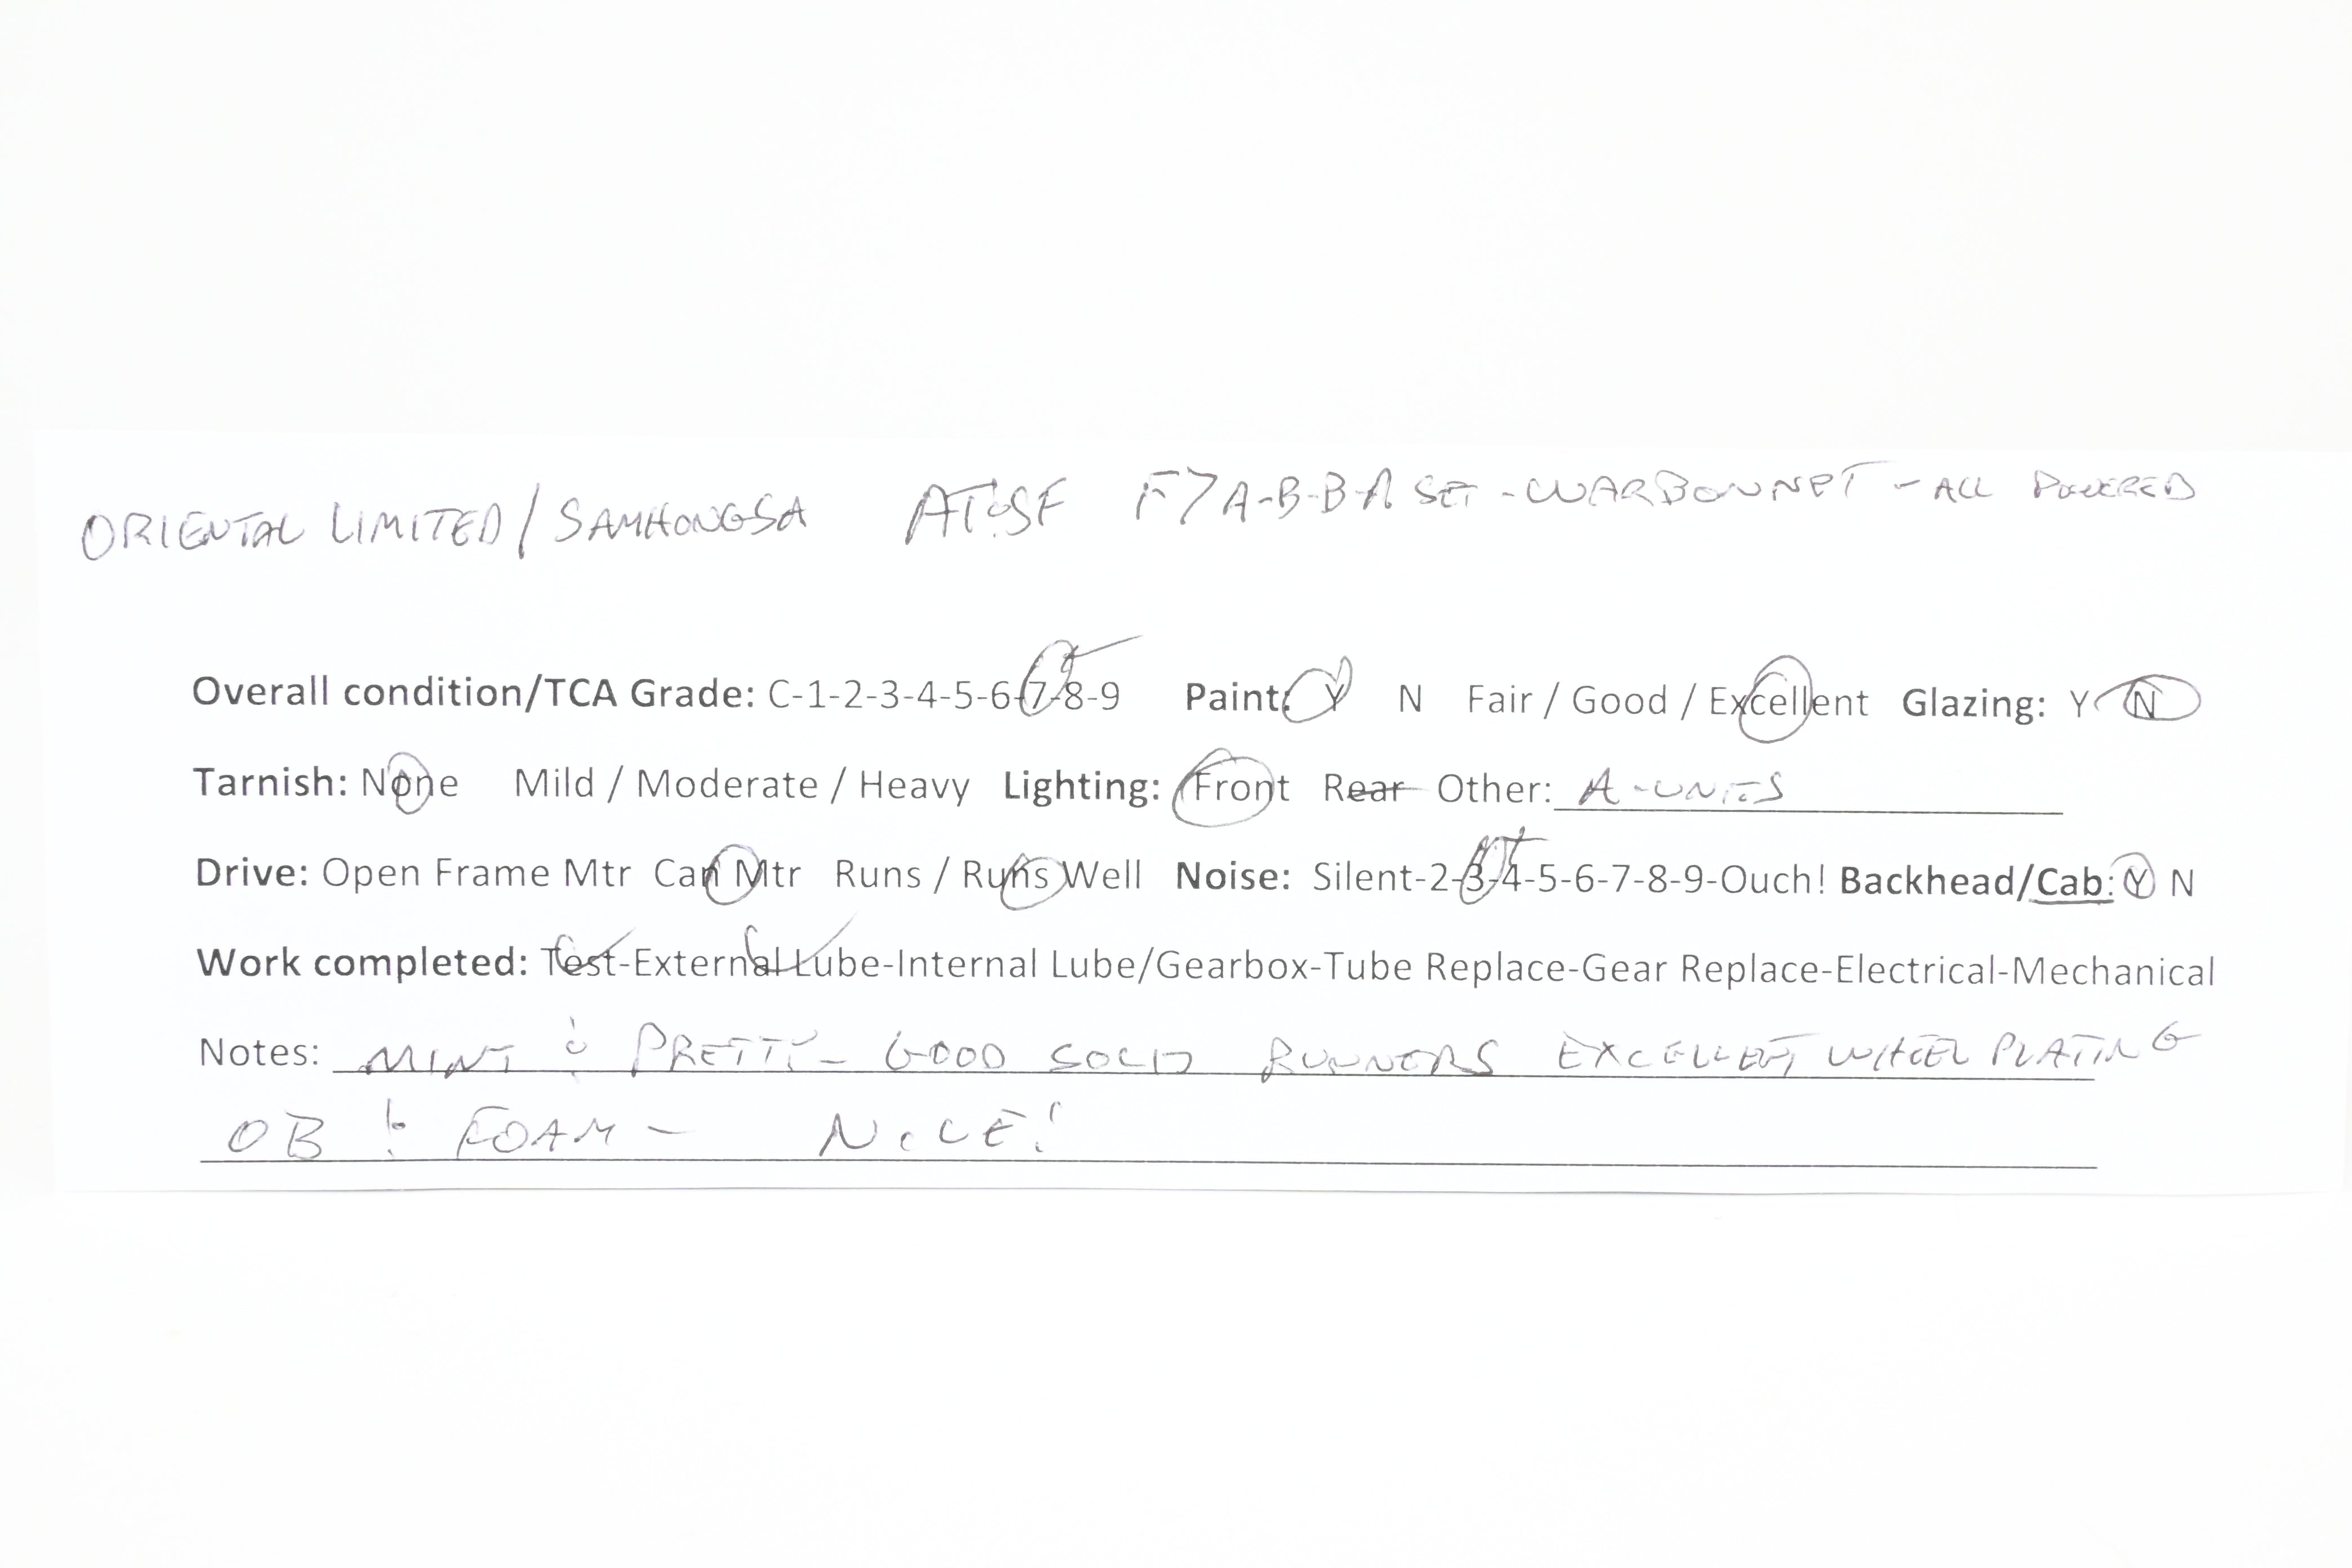 ORIENTAL LIMITED/SAMHONGSA AT&SF F7 A-B-B-A SET - WARBONNET - ALL POWERED
Overall condition/TCA Grade: C-1-2-3-4-5-6-7-8-9 Paint: Y N Fair / Good / Excellent Glazing: Y N
Tarnish: None Mild / Moderate / Heavy Lighting: Front Rear Other: A-UNITS
Drive: Open Frame Mtr Can Mtr Runs / Runs Well Noise: Silent-2-3-4-5-6-7-8-9-Ouch! Backhead/Cab: Y N
Work completed: Test-External Lube-Internal Lube/Gearbox-Tube Replace-Gear Replace-Electrical-Mechanical
Notes: MINT & PRETTY - GOOD SOLID RUNNERS EXCELLENT WHEEL PLATING
OB & FOAM - NICE!